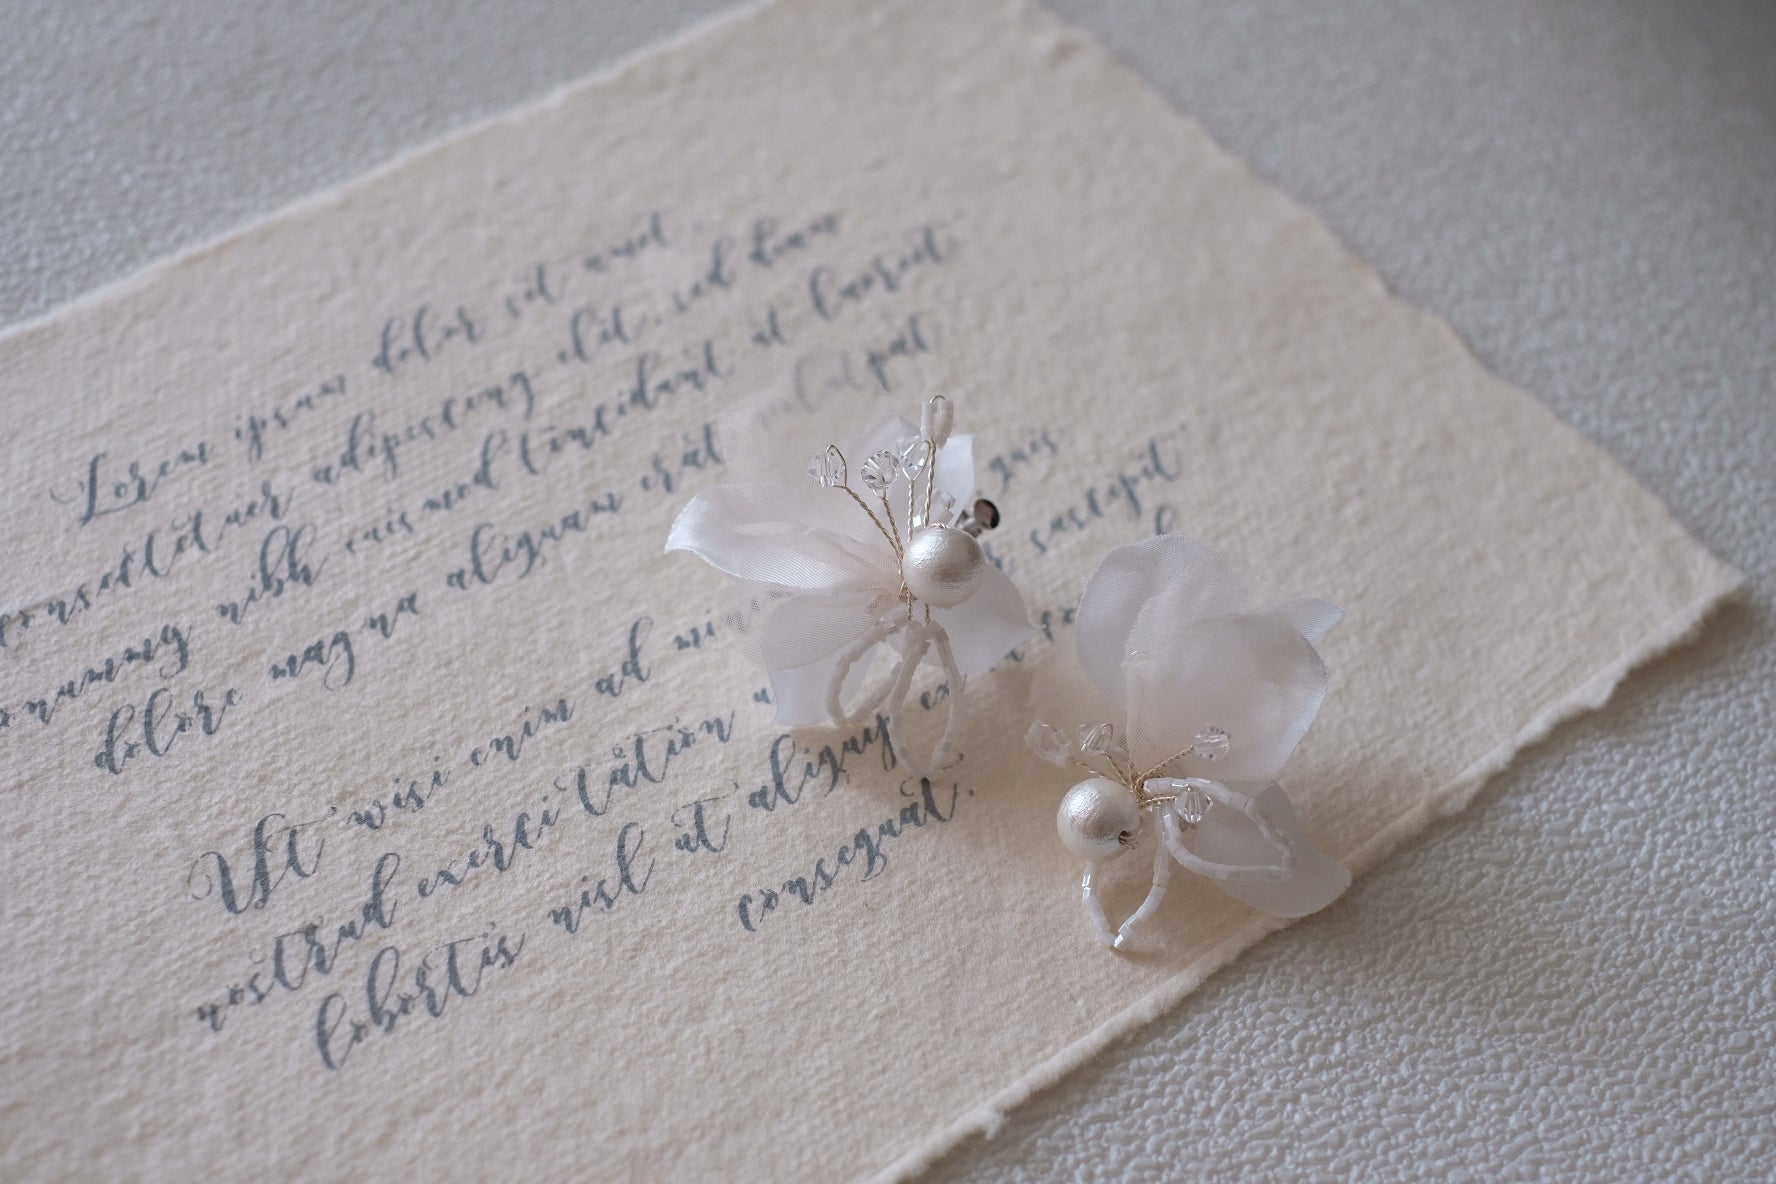 Lorem ipsum dolor sit amet,
consectetuer adipiscing elit, sed diam
nonummy nibh euismod tincidunt ut laoreet
dolore magna aliquam erat volutpat
Ut wisi enim ad mi quis
nostrud exerci tation u r suscipit
lobortis nisl ut aliquip ex
consequat.